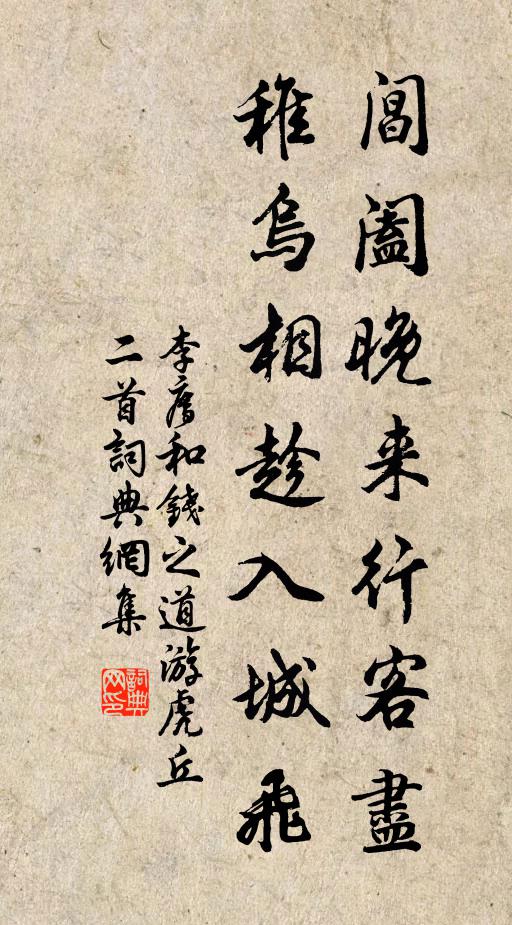 閶闔晚来行客盡
稚烏相趁入城飛
李和錢之道游虎丘
二首詞典網集
詞典网印